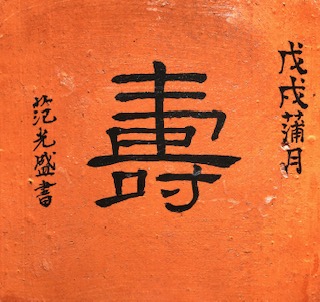 戊戌蒲月
壽
范光盛書